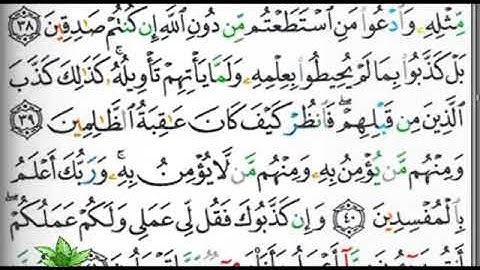 مِّثْلِهِۦ وَٱدْعُوا۟ مَنِ ٱسْتَطَعْتُم مِّن دُونِ ٱللَّهِ إِن كُنتُمْ صَـٰدِقِينَ ٣٨
بَلْ كَذَّبُوا۟ بِمَا لَمْ يُحِيطُوا۟ بِعِلْمِهِۦ وَلَمَّا يَأْتِهِمْ تَأْوِيلُهُۥ ۚ كَذَٰلِكَ كَذَّبَ
ٱلَّذِينَ مِن قَبْلِهِمْ ۖ فَٱنظُرْ كَيْفَ كَانَ عَـٰقِبَةُ ٱلظَّـٰلِمِينَ ٣٩
وَمِنْهُم مَّن يُؤْمِنُ بِهِۦ وَمِنْهُم مَّن لَّا يُؤْمِنُ بِهِۦ ۚ وَرَبُّكَ أَعْلَمُ
بِٱلْمُفْسِدِينَ ٤٠ وَإِن كَذَّبُوكَ فَقُل لِّى عَمَلِى وَلَكُمْ عَمَلُكُمْ ۖ